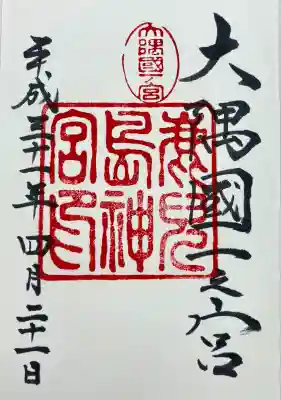 大隅國一之宮
大隅國一宮
鹿兒島神宮印
平成三十一年四月二十一日